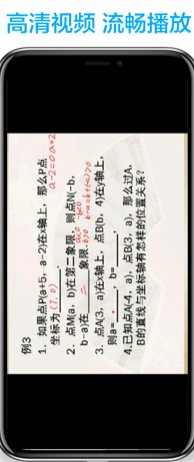 高清视频 流畅播放
例3
1. 如果点P(a+5, a-2)在x轴上,那么P点
坐标为(7,0). a-2=0 a=2
2. 点M(a, b)在第二象限,则点N(-b,
b-a)在 二 象限.
3. 点A(3, a)在x轴上,点B(b, 4)在y轴上,
则a= , b= .
4.已知点A(-4, a),点B(3, a),那么过A,
B的直线与坐标轴有怎样的位置关系?